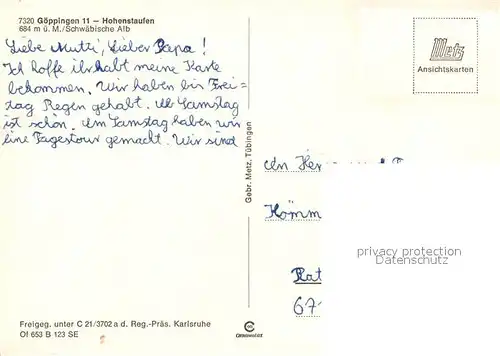 7320 Göppingen 11 — Hohenstaufen
684 m ü. M./Schwäbische Alb
Liebe Mutti, Lieber Papa!
Ich hoffe ihr habt meine Karte
bekommen. Wir haben bis Frei=
tag Regen gehabt. Ab Samstag
ist schön. Am Samstag haben wir
eine Tagestour gemacht. Wir sind
Metz
Ansichtskarten
Gebr. Metz, Tübingen
An
privacy protection
67
Freigeg. unter C 21/3702 a d. Reg.-Präs. Karlsruhe
Of 653 B 123 SE